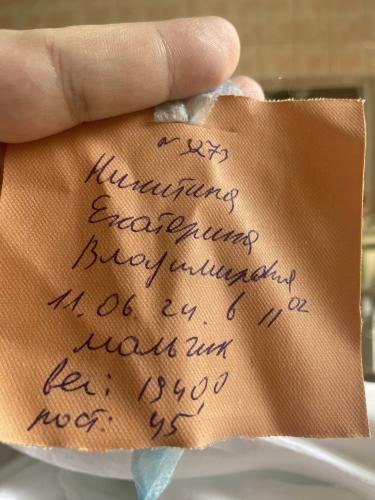 № 3273
Никитина
Екатерина
Владимировна
11.06.24. в 11 02
мальчик
вес: 19400
рост: 45